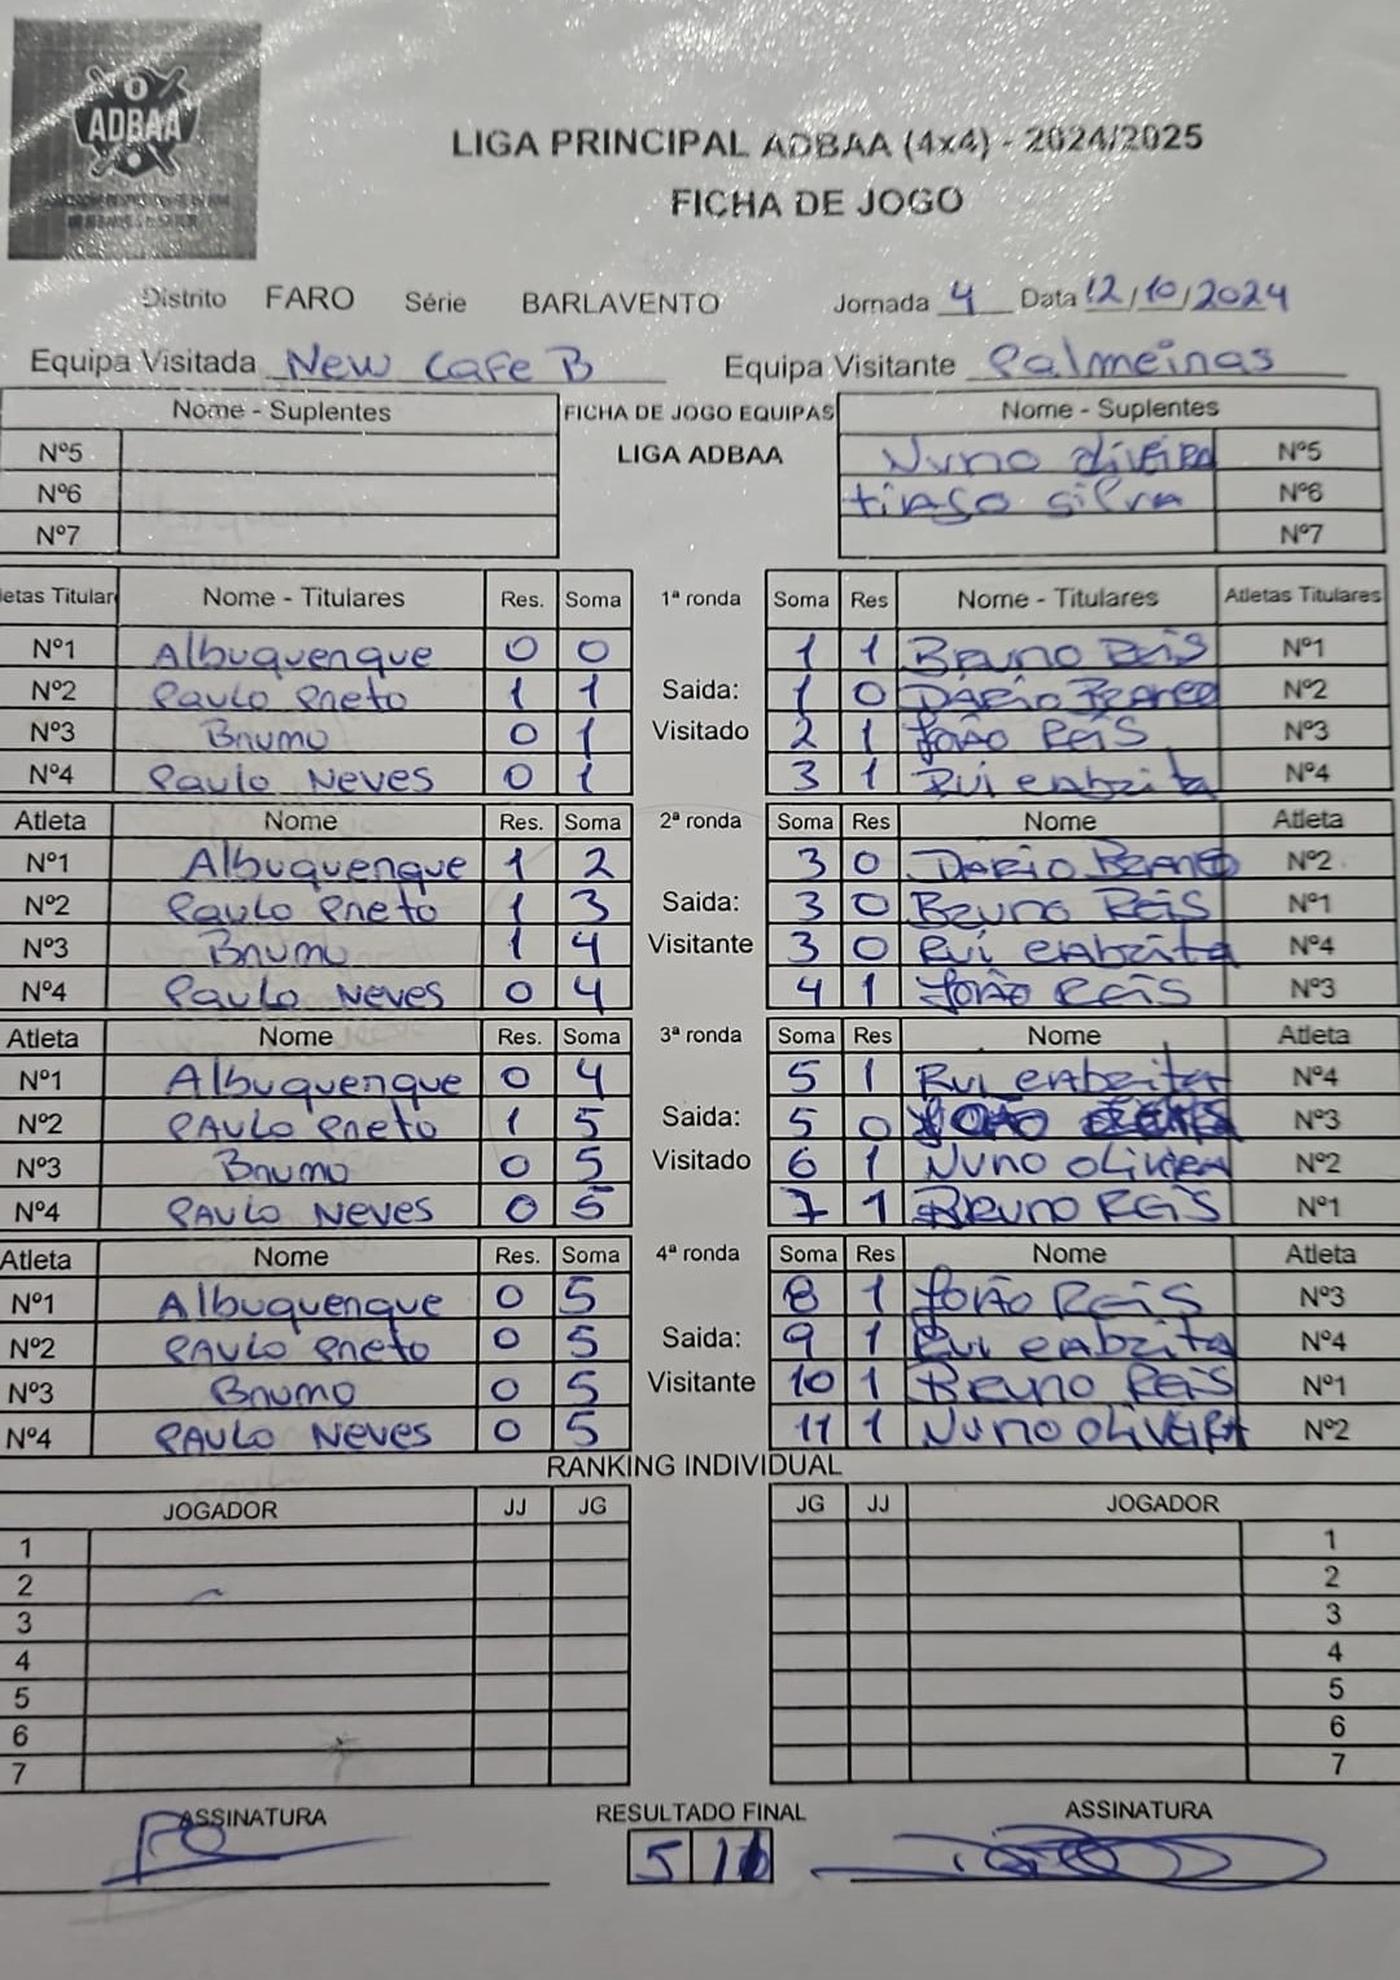 ADBAA
LIGA PRINCIPAL ADBAA (4x4) - 2024/2025
FICHA DE JOGO
Distrito FARO Série BARLAVENTO Jornada 4 Data 12/10/2024
Equipa Visitada New Cafe B Equipa Visitante Palmeinas
Nome - Suplentes FICHA DE JOGO EQUIPAS Nome - Suplentes
Nº5 LIGA ADBAA Nuno oliveira Nº5
Nº6 tiago silva Nº6
Nº7 Nº7
letas Titular Nome - Titulares Res. Soma 1ª ronda Soma Res Nome - Titulares Atletas Titulares
Nº1 Albuquenque 0 0 1 1 Bruno Reis Nº1
Nº2 Paulo Pneto 1 1 Saida: 1 0 Dário Branco Nº2
Nº3 Bnumo 0 1 Visitado 2 1 João Reis Nº3
Nº4 Paulo Neves 0 1 3 1 Rui enbrita Nº4
Atleta Nome Res. Soma 2ª ronda Soma Res Nome Atleta
Nº1 Albuquenque 1 2 3 0 Dário Branco Nº2
Nº2 Paulo Pneto 1 3 Saida: 3 0 Bruno Reis Nº1
Nº3 Bnumo 1 4 Visitante 3 0 Rui enbrita Nº4
Nº4 Paulo Neves 0 4 4 1 João Reis Nº3
Atleta Nome Res. Soma 3ª ronda Soma Res Nome Atleta
Nº1 Albuquenque 0 4 5 1 Rui enbrita Nº4
Nº2 PAULO Pneto 1 5 Saida: 5 0 João Nº3
Nº3 Bnumo 0 5 Visitado 6 1 Nuno oliveira Nº2
Nº4 PAULO NEVES 0 5 7 1 Bruno Reis Nº1
Atleta Nome Res. Soma 4ª ronda Soma Res Nome Atleta
Nº1 Albuquenque 0 5 8 1 João Reis Nº3
Nº2 PAULO Pneto 0 5 Saida: 9 1 Rui enbrita Nº4
Nº3 Bnumo 0 5 Visitante 10 1 Bruno Reis Nº1
Nº4 PAULO NEVES 0 5 11 1 Nuno oliveira Nº2
RANKING INDIVIDUAL
JOGADOR JJ JG JG JJ JOGADOR
1 1
2 2
3 3
4 4
5 5
6 6
7 7
ASSINATURA RESULTADO FINAL ASSINATURA
5 11